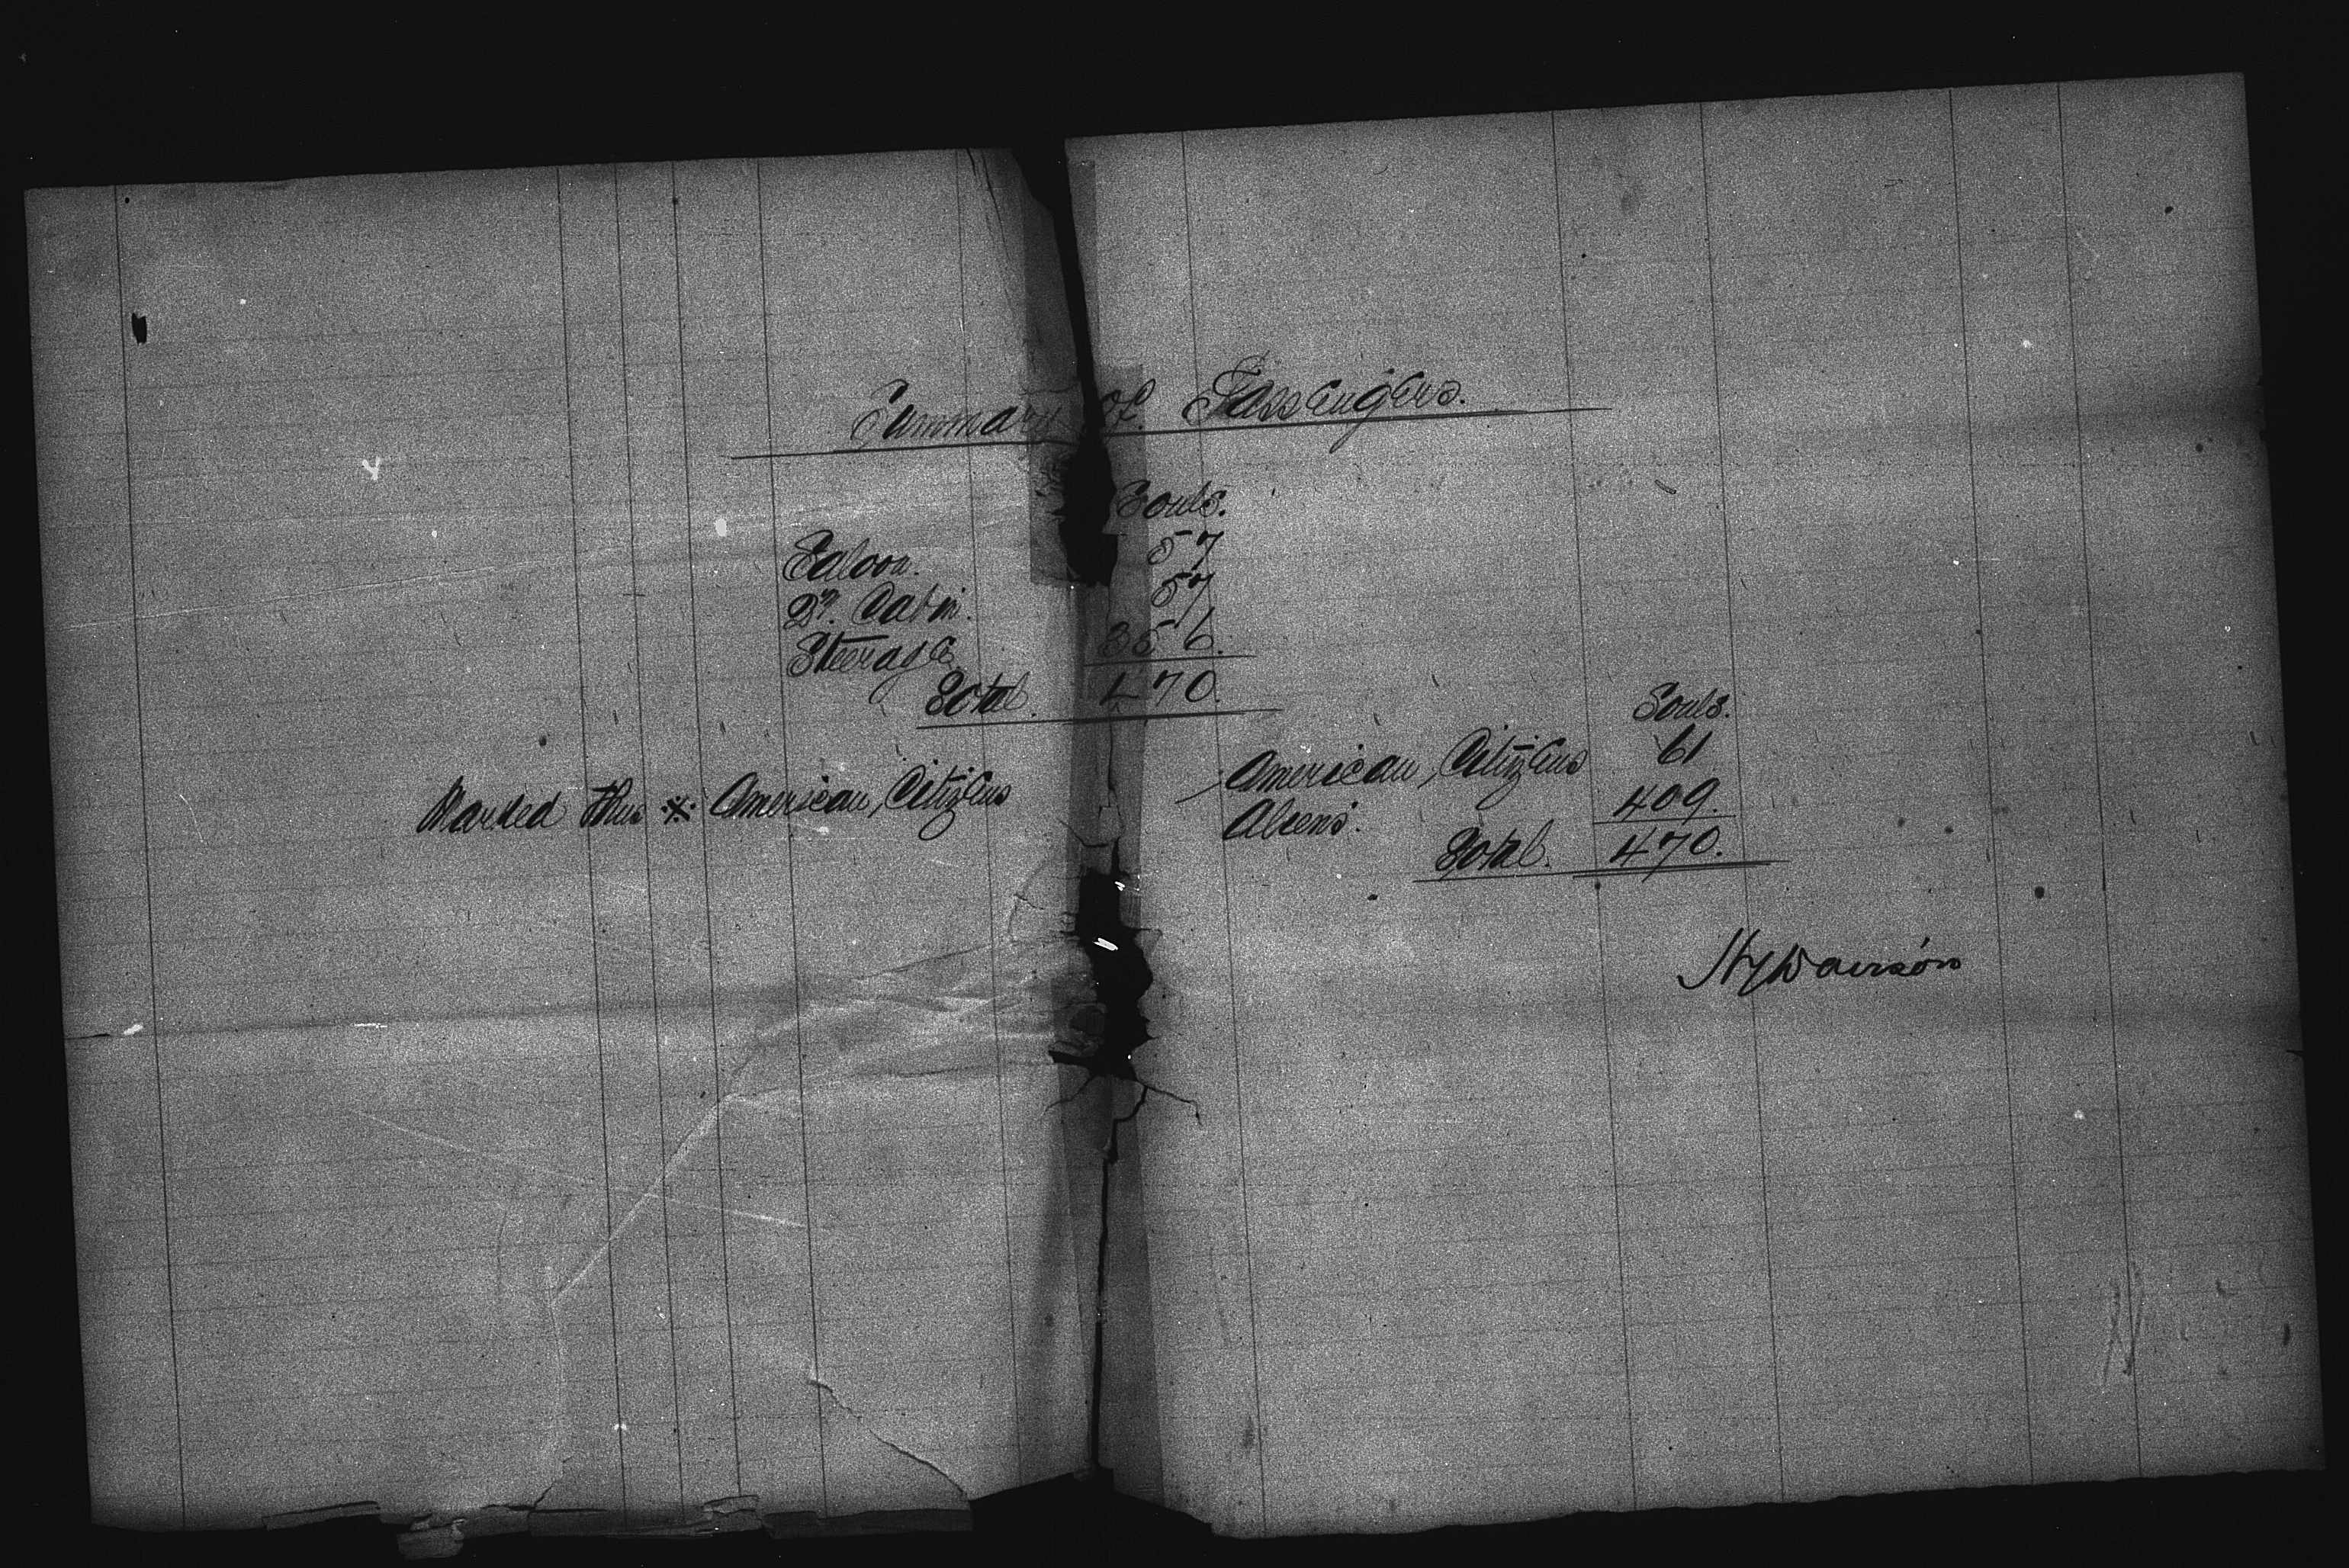 Summary of Passengers.
Souls.
Saloon. 57
2n. Cabin. 57
Steerage 356.
Total. 470.
Souls.
American Citizens 61
Marked thus ※ American Citizens
Aliens. 409.
Total. 470.